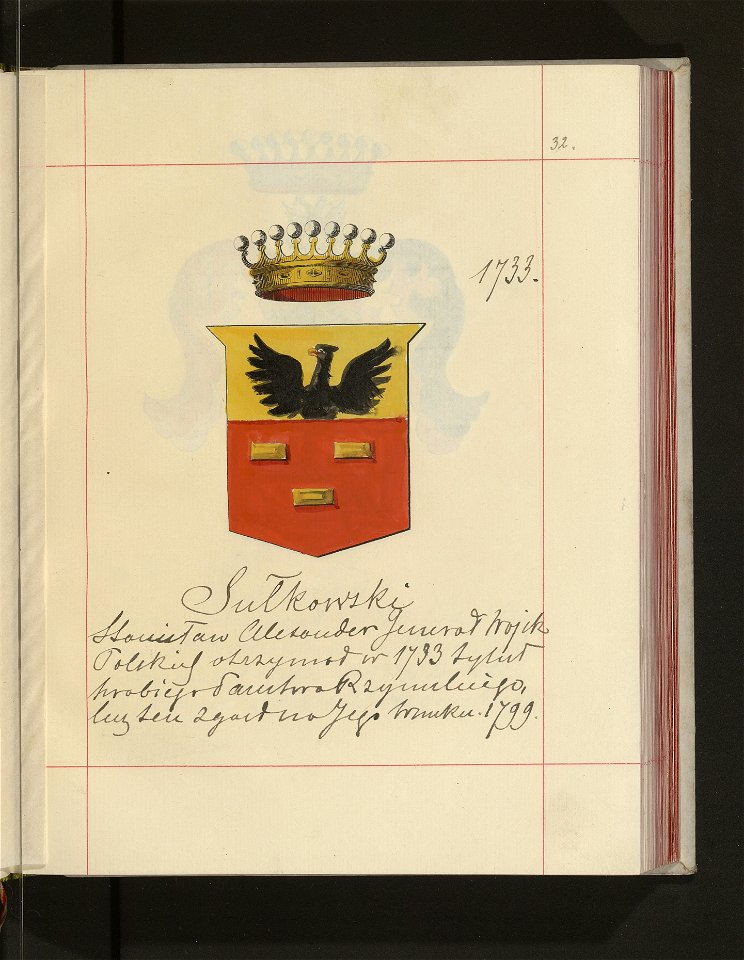 32.
1733.
Sułkowski
Stanisław Alexander Jenerał Wojsk
Polskich otrzymał w 1733 tytuł
hrabiego Państwa Rzymskiego,
lecz ten zgasł na Jego wnuku. 1799.